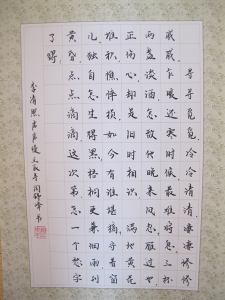 寻寻觅觅，冷冷清清，凄凄惨惨
戚戚。乍暖还寒时候，最难将息。三杯
两盏淡酒，怎敌他晚来风急。雁过也，
正伤心，却是旧时相识。满地黄花
堆积，憔悴损，如今有谁堪摘。守着窗
儿独自怎生得黑。梧桐更兼细雨，到
黄昏点点滴滴。这次第，怎一个愁字
了得。
李清照声声慢 书